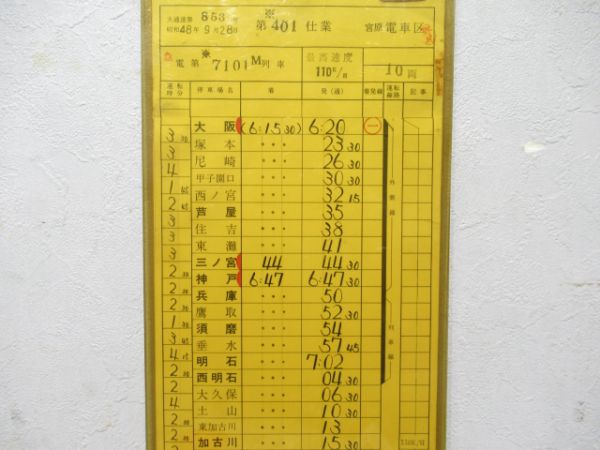 大運達第 853 号
昭和48年 9月28日
※
第401仕業
宮原電車区
※
電第 7101M列車
最高速度
110K/H
10両
運転時分 停車場名 着 発(通) 着発線 運転線路 記事
大阪 (6:15 30) 6:20 ㊀
3 塚本 ・・・ 23 30
3 尼崎 ・・・ 26 30
4 甲子園口 ・・・ 30 30
1 45 西ノ宮 ・・・ 32 15
2 45 芦屋 ・・・ 35
3 住吉 ・・・ 38
3 東灘 ・・・ 41
3 三ノ宮 44 44 30
2 30 神戸 6:47 6:47 30
2 30 兵庫 ・・・ 50
2 30 鷹取 ・・・ 52 30
1 30 須磨 ・・・ 54
3 45 垂水 ・・・ 57 45
4 15 明石 ・・・ 7:02
2 30 西明石 ・・・ 04 30
2 大久保 ・・・ 06 30
4 土山 ・・・ 10 30
2 30 東加古川 ・・・ 13
2 30 加古川 ・・・ 15 30
外側線
列車線